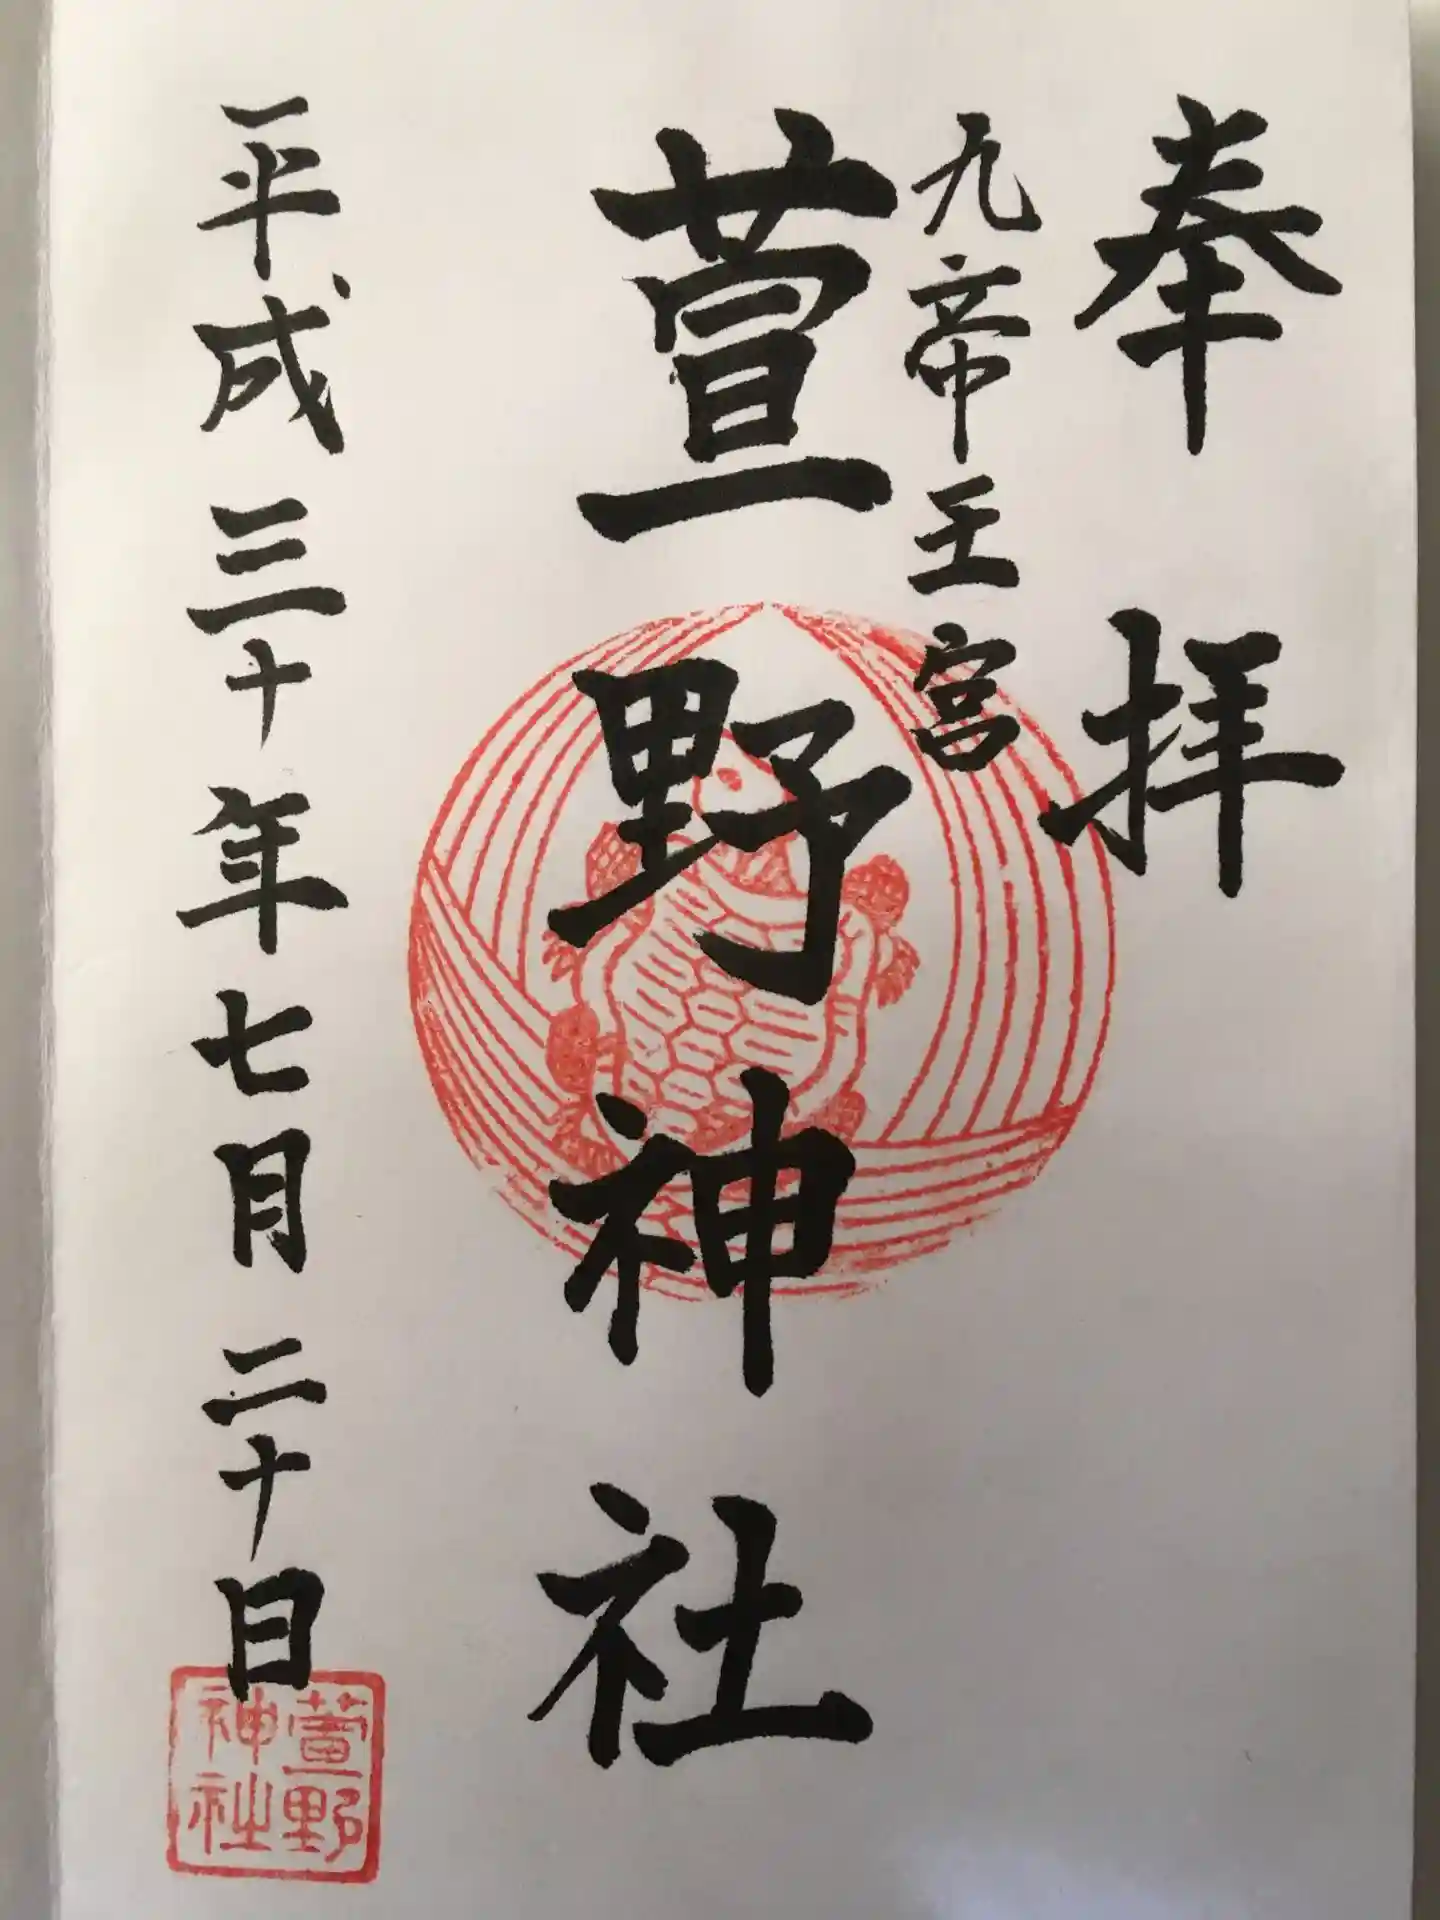 奉拝
九帝王宮
萱野神社
平成三十年七月二十日
萱野
神社